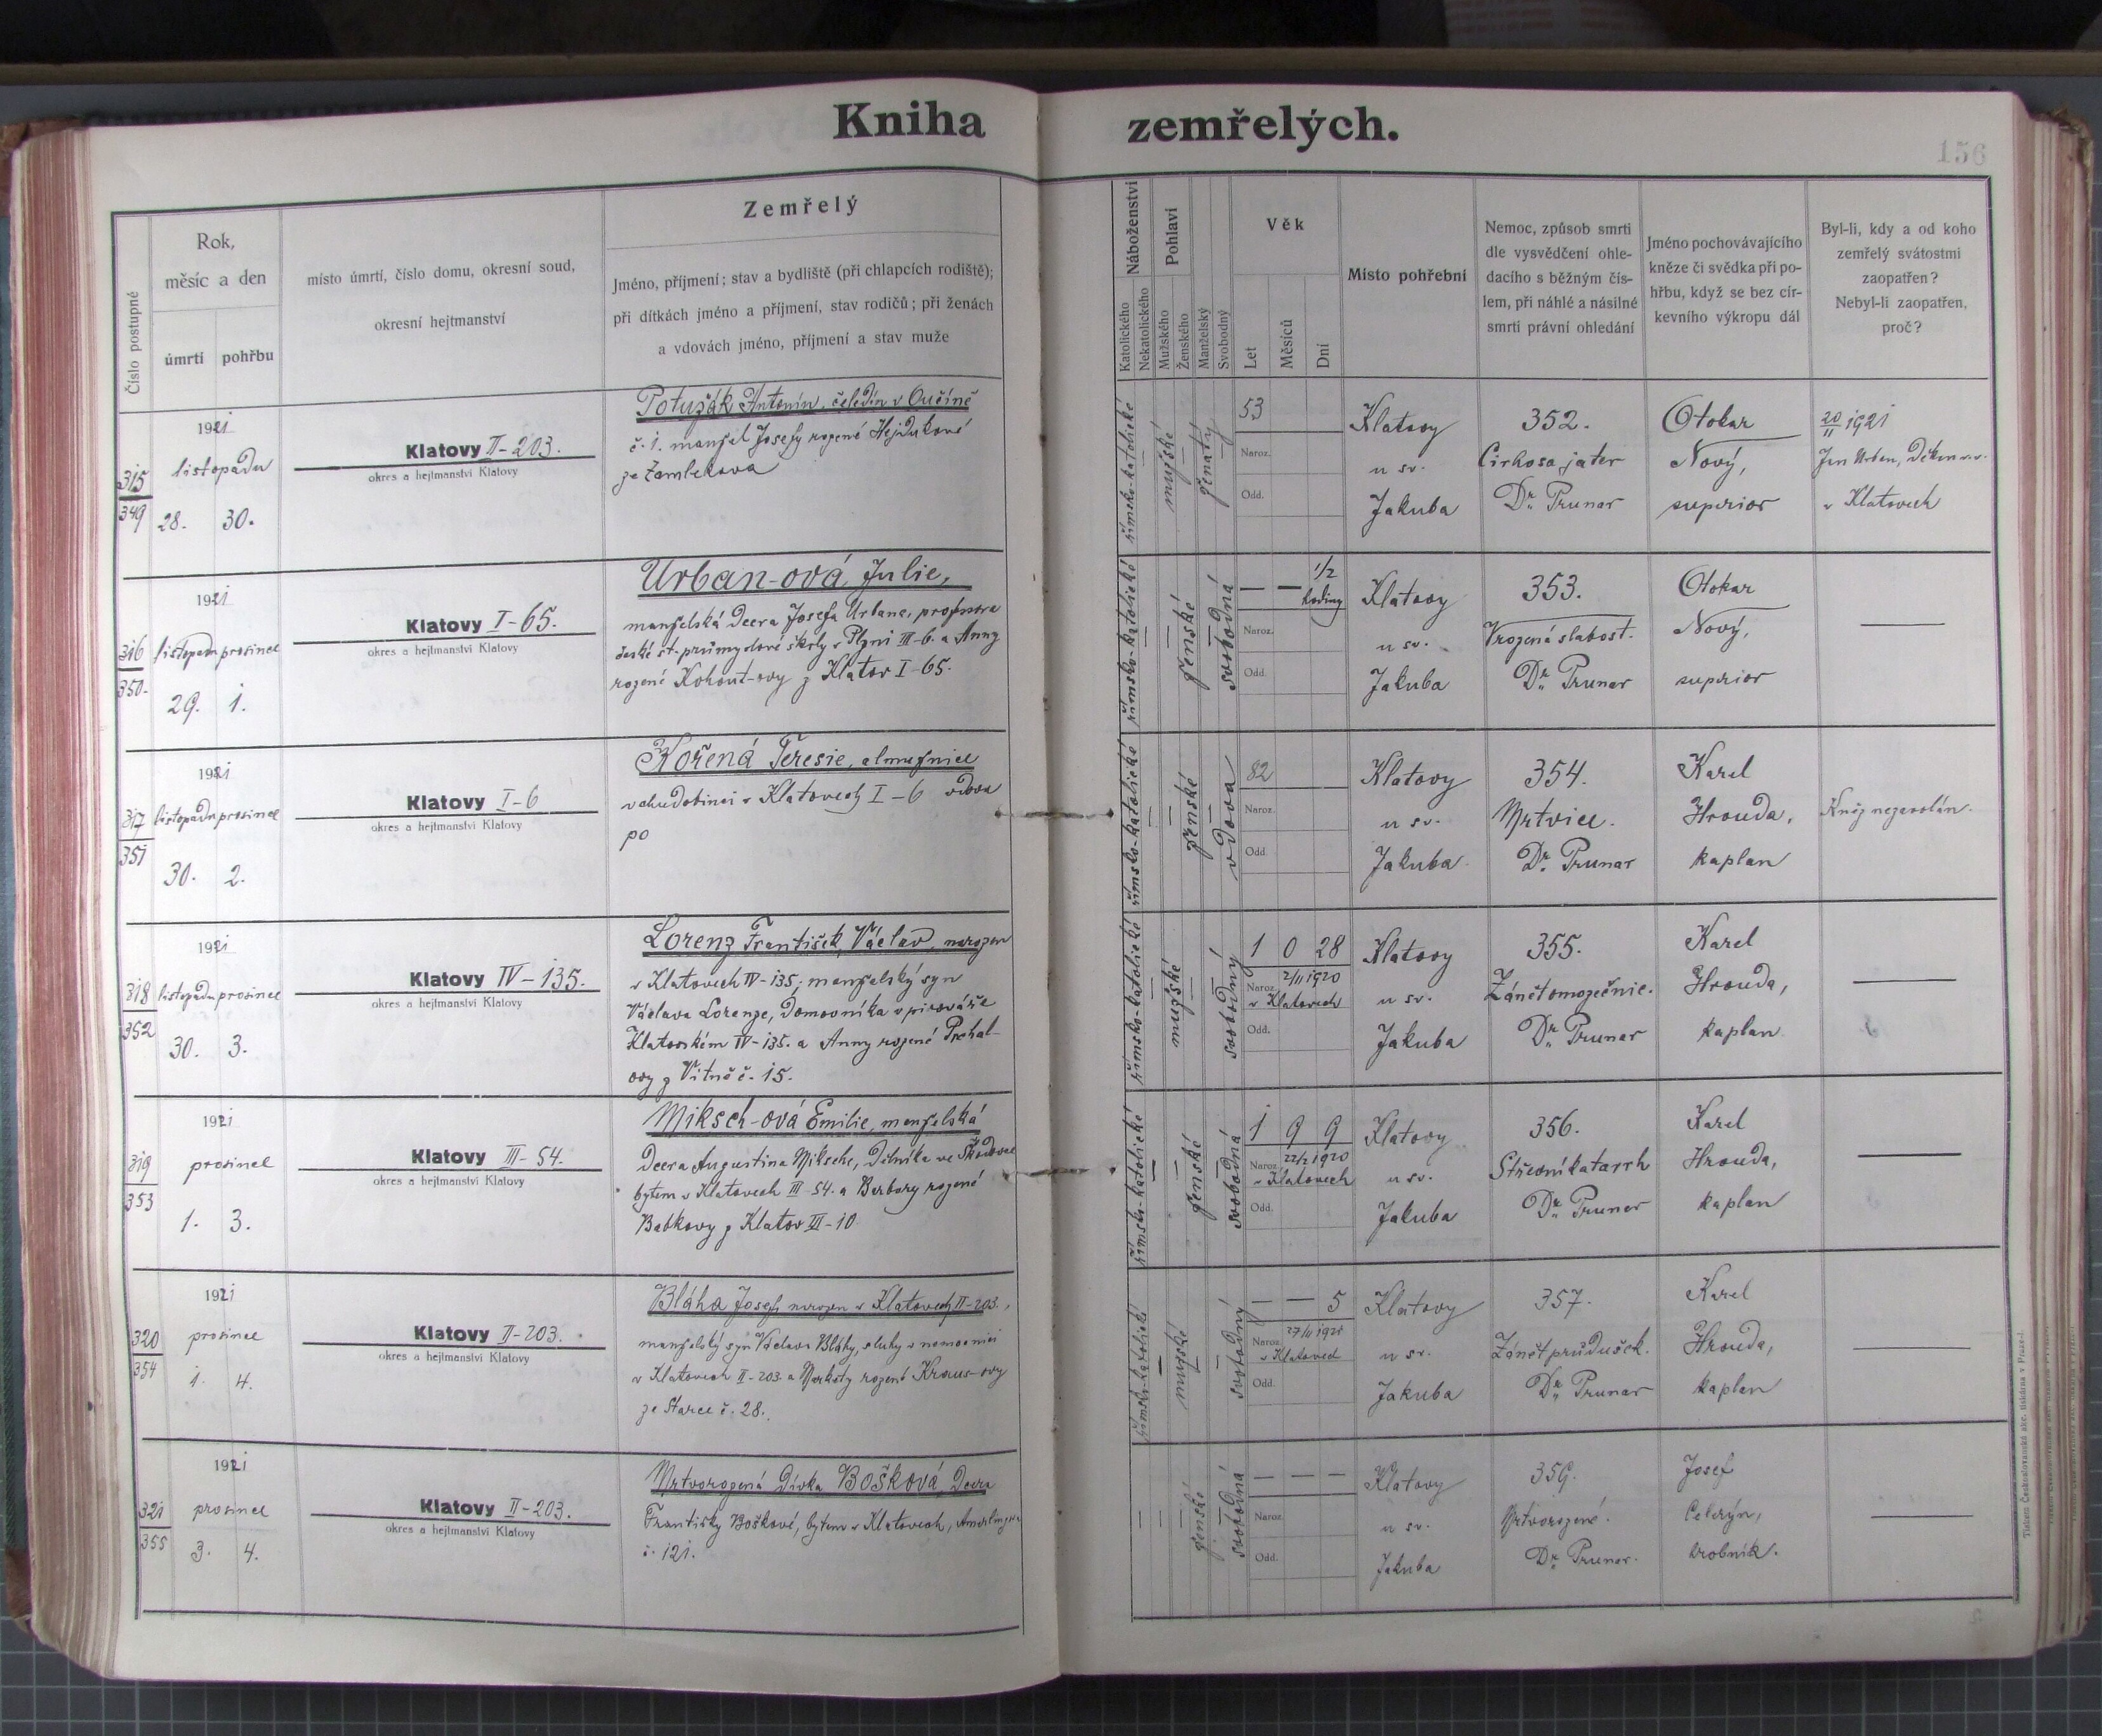 Kniha zemřelých.
156
Číslo postupné
Rok,
měsíc a den
úmrtí pohřbu
místo úmrtí, číslo domu, okresní soud,
okresní hejtmanství
Zemřelý
Jméno, příjmení; stav a bydliště (při chlapcích rodiště);
při dítkách jméno a příjmení, stav rodičů; při ženách
a vdovách jméno, příjmení a stav muže
Náboženství
Katolického
Nekatolického
Pohlaví
Mužského
Ženského
Manželský
Svobodný
Věk
Let
Měsíců
Dní
Místo pohřební
Nemoc, způsob smrti
dle vysvědčení ohle-
dacího s běžným čís-
lem, při náhlé a násilné
smrti právní ohledání
Jméno pochovávajícího
kněze či svědka při po-
hřbu, když se bez cír-
kevního výkropu dál
Byl-li, kdy a od koho
zemřelý svátostmi
zaopatřen?
Nebyl-li zaopatřen,
proč?
315
349
1921
listopadu
28. 30.
Klatovy II-203.
okres a hejtmanství Klatovy
Potužák Antonín, čeledín v Oučíně
č. 1. manžel Josefy rozené Hejdukové
ze Žamlekova
římsko-katolické
mužské
ženatý
53
Naroz.
Odd.
Klatovy
u sv.
Jakuba
352.
Cirhosa jater
Dr. Prunar
Otokar
Nový,
superior
20/11 1921
Jan Urban, děkan
v Klatovech
316
350.
1921
listopadu prosince
29. 1.
Klatovy I-65.
okres a hejtmanství Klatovy
Urban-ová Julie,
manželská dcera Josefa Urbana, profesora
české st. průmyslové školy v Plzni III-6. a Anny
rozené Kohout-ovy z Klatov I-65.
římsko-katolické
ženské
svobodná
— — 1/2
hodiny
Naroz.
Odd.
Klatovy
u sv.
Jakuba
353.
Vrozená slabost.
Dr. Prunar
Otokar
Nový,
superior
—
317
351
1921
listopadu prosince
30. 2.
Klatovy I-6
okres a hejtmanství Klatovy
Kořená Teresie, almužnice
v chudobinci v Klatovech I-6 vdova
po
římsko-katolické
ženské
vdova
82
Naroz.
Odd.
Klatovy
u sv.
Jakuba
354.
Mrtvice.
Dr. Prunar
Karel
Hrouda,
kaplan
Kněz nezavolán.
318
352
1921
listopadu prosince
30. 3.
Klatovy IV-135.
okres a hejtmanství Klatovy
Lorenz František Václav, narozen
v Klatovech IV-135, manželský syn
Václava Lorenze, domovníka v pivováře
Klatovském IV-135. a Anny rozené Prehal-
ovy z Vitně č. 15.
římsko-katolické
mužské
svobodný
1 0 28
Naroz. 2/11 1920
v Klatovech
Odd.
Klatovy
u sv.
Jakuba
355.
Zánět omozečnic.
Dr. Prunar
Karel
Hrouda,
kaplan
—
319
353
1921
prosince
1. 3.
Klatovy III-54.
okres a hejtmanství Klatovy
Miksch-ová Emilie, manželská
dcera Augustina Miksche, dělníka ve Škodovce
bytem v Klatovech III-54. a Barbory rozené
Babkovy z Klatov III-10.
římsko-katolické
ženské
svobodná
1 9 9
Naroz. 22/2 1920
v Klatovech
Odd.
Klatovy
u sv.
Jakuba
356.
Střevní katarrh
Dr. Prunar
Karel
Hrouda,
kaplan
—
320
354
1921
prosince
1. 4.
Klatovy II-203.
okres a hejtmanství Klatovy
Bláha Josef, narozen v Klatovech II-203.,
manželský syn Václava Bláhy, sluhy v nemocnici
v Klatovech II-203. a Markety rozené Kraus-ovy
ze Starce č. 28.
římsko-katolické
mužské
svobodný
— — 5
Naroz. 27/11 1921
v Klatovech
Odd.
Klatovy
u sv.
Jakuba
357.
Zánět průdušek.
Dr. Prunar
Karel
Hrouda,
kaplan
—
321
355
1921
prosince
3. 4.
Klatovy II-203.
okres a hejtmanství Klatovy
Mrtvorozená dívka Bošková, dcera
Františky Boškové, bytem v Klatovech,
č. 121.
ženské
svobodná
— — —
Naroz.
Odd.
Klatovy
u sv.
Jakuba
359.
Mrtvorozené.
Dr. Prunar.
Josef
Celerýn,
hrobník.
—